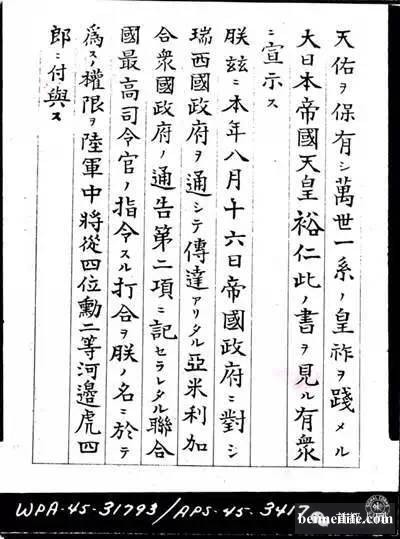 天佑ヲ保有シ萬世一系ノ皇祚ヲ踐メル
大日本帝國天皇裕仁此ノ書ヲ見ル有衆
ニ宣示ス
朕玆ニ本年八月十六日帝國政府ニ對シ
瑞西國政府ヲ通シテ傳達アリタル亞米利加
合衆國政府ノ通告第二項ニ記セラレタル聯合
國最高司令官ノ指令スル打合ヲ朕ノ名ニ於テ
爲スノ權限ヲ陸軍中將從四位勳二等河邉虎四
郎ニ付與ス
WPA-45-31793/APS-45-3417
beimeilife.com